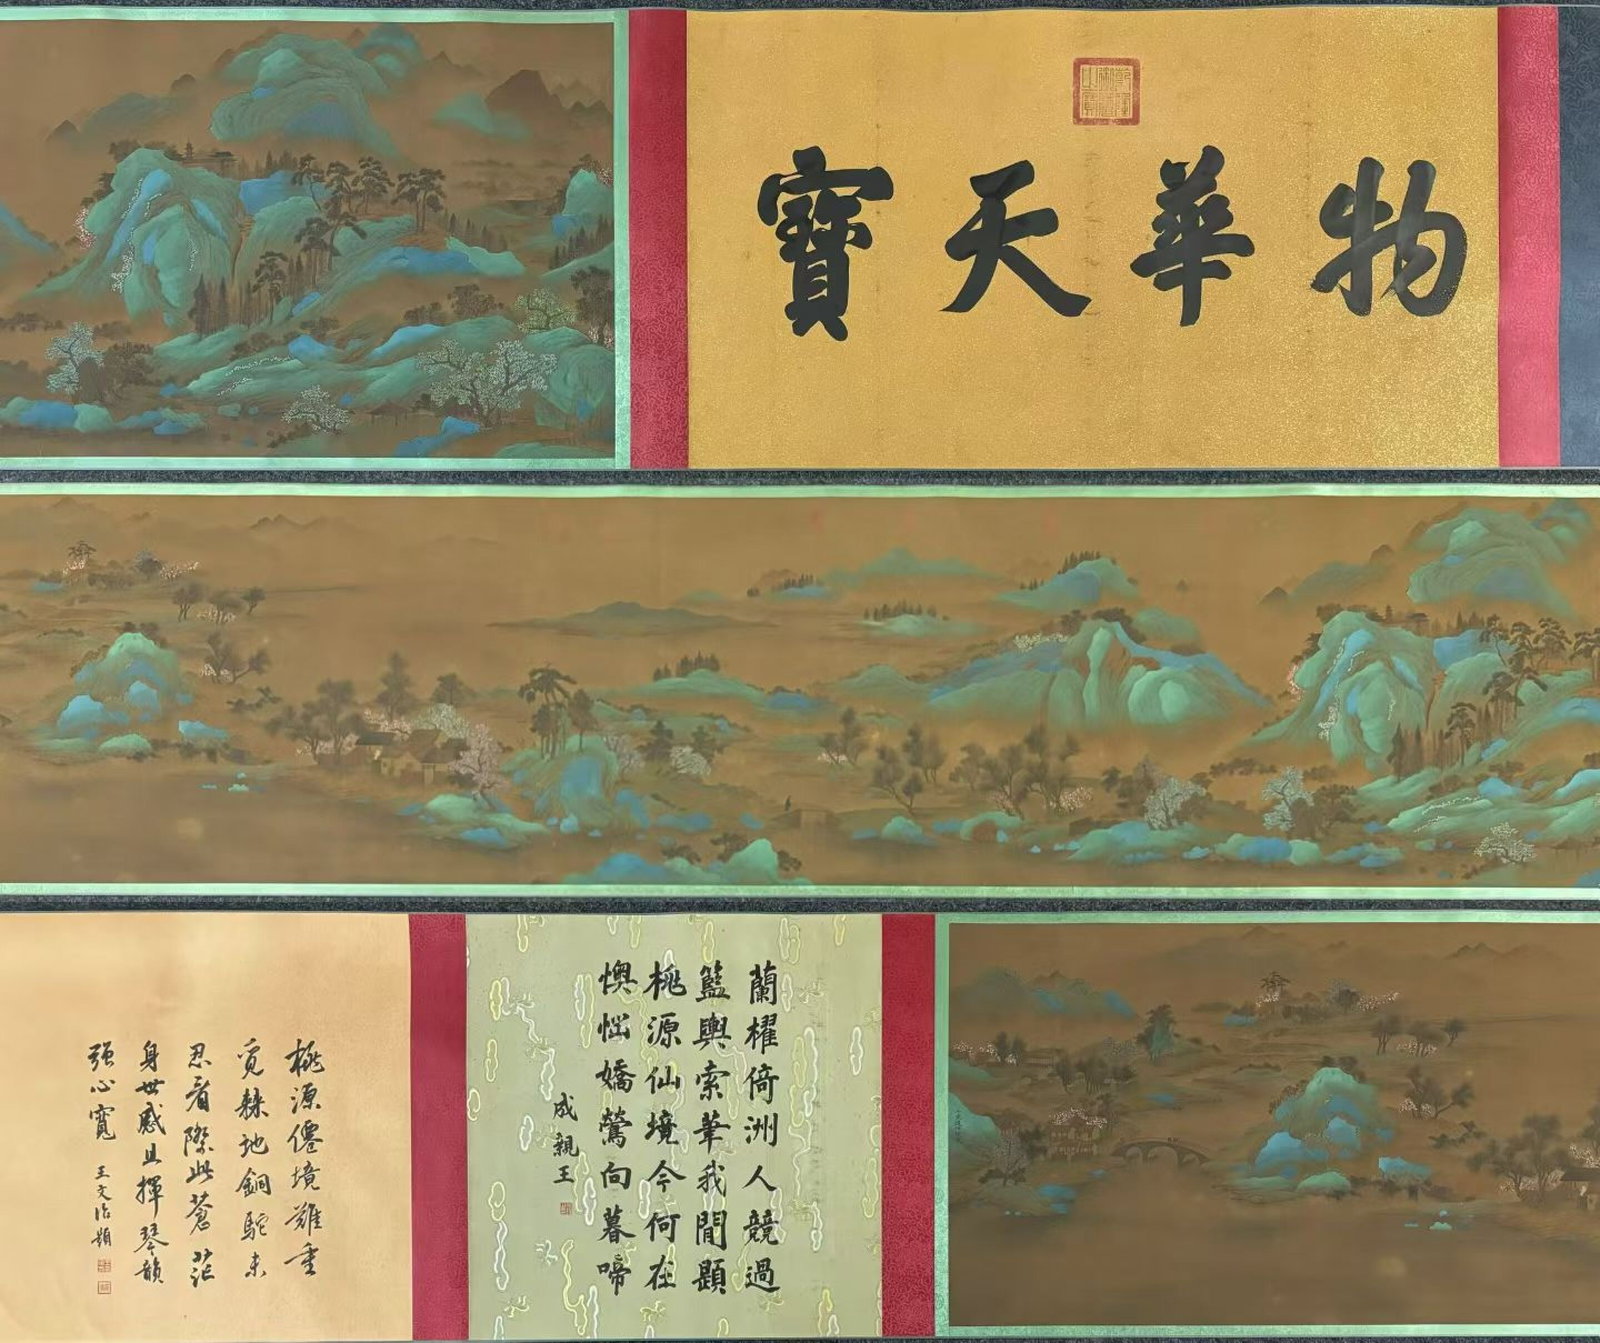 物華天寶
乾隆御覽之寶
蘭櫂倚洲人競過
籃輿索筆我閒題
桃源仙境今何在
懊惱嬌鶯向暮啼
成親王
桃源僊境難重
覓棘地銅駝未
忍看際此蒼茫
身世感且揮琴韻
强心寬
王文治題